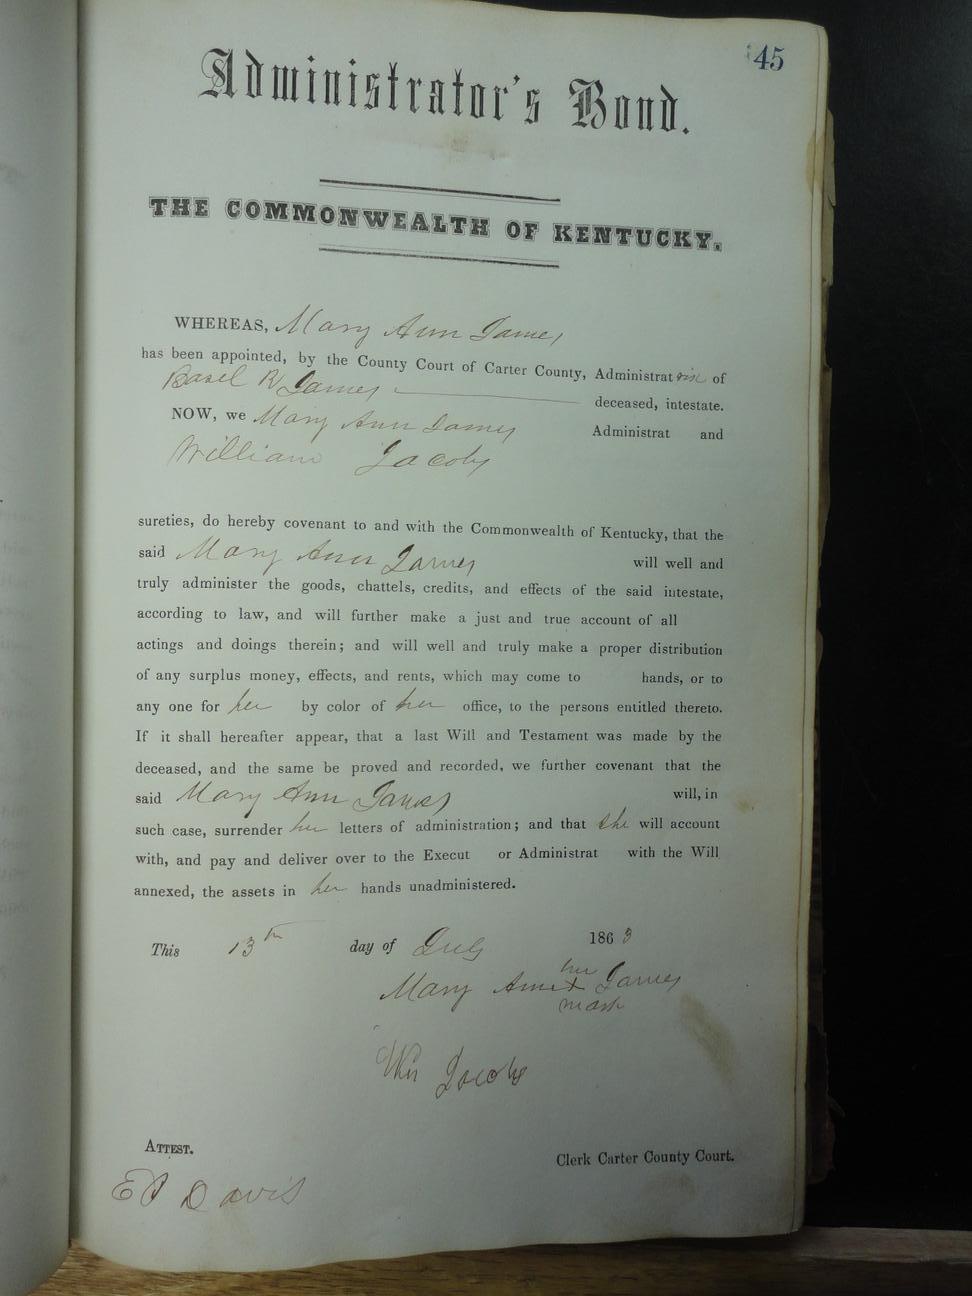 45
Administrator's Bond.
THE COMMONWEALTH OF KENTUCKY.
WHEREAS, Mary Ann James
has been appointed, by the County Court of Carter County, Administratrix of
Basel R James deceased, intestate.
NOW, we Mary Ann James Administrat and
William Jacobs
sureties, do hereby covenant to and with the Commonwealth of Kentucky, that the
said Mary Ann James will well and
truly administer the goods, chattels, credits, and effects of the said intestate,
according to law, and will further make a just and true account of all
actings and doings therein; and will well and truly make a proper distribution
of any surplus money, effects, and rents, which may come to hands, or to
any one for her by color of her office, to the persons entitled thereto.
If it shall hereafter appear, that a last Will and Testament was made by the
deceased, and the same be proved and recorded, we further covenant that the
said Mary Ann James will, in
such case, surrender her letters of administration; and that she will account
with, and pay and deliver over to the Execut or Administrat with the Will
annexed, the assets in her hands unadministered.
This 13th day of July 1863
her
Mary Ann x James
mark
Wm Jacobs
ATTEST.
Clerk Carter County Court.
Davis